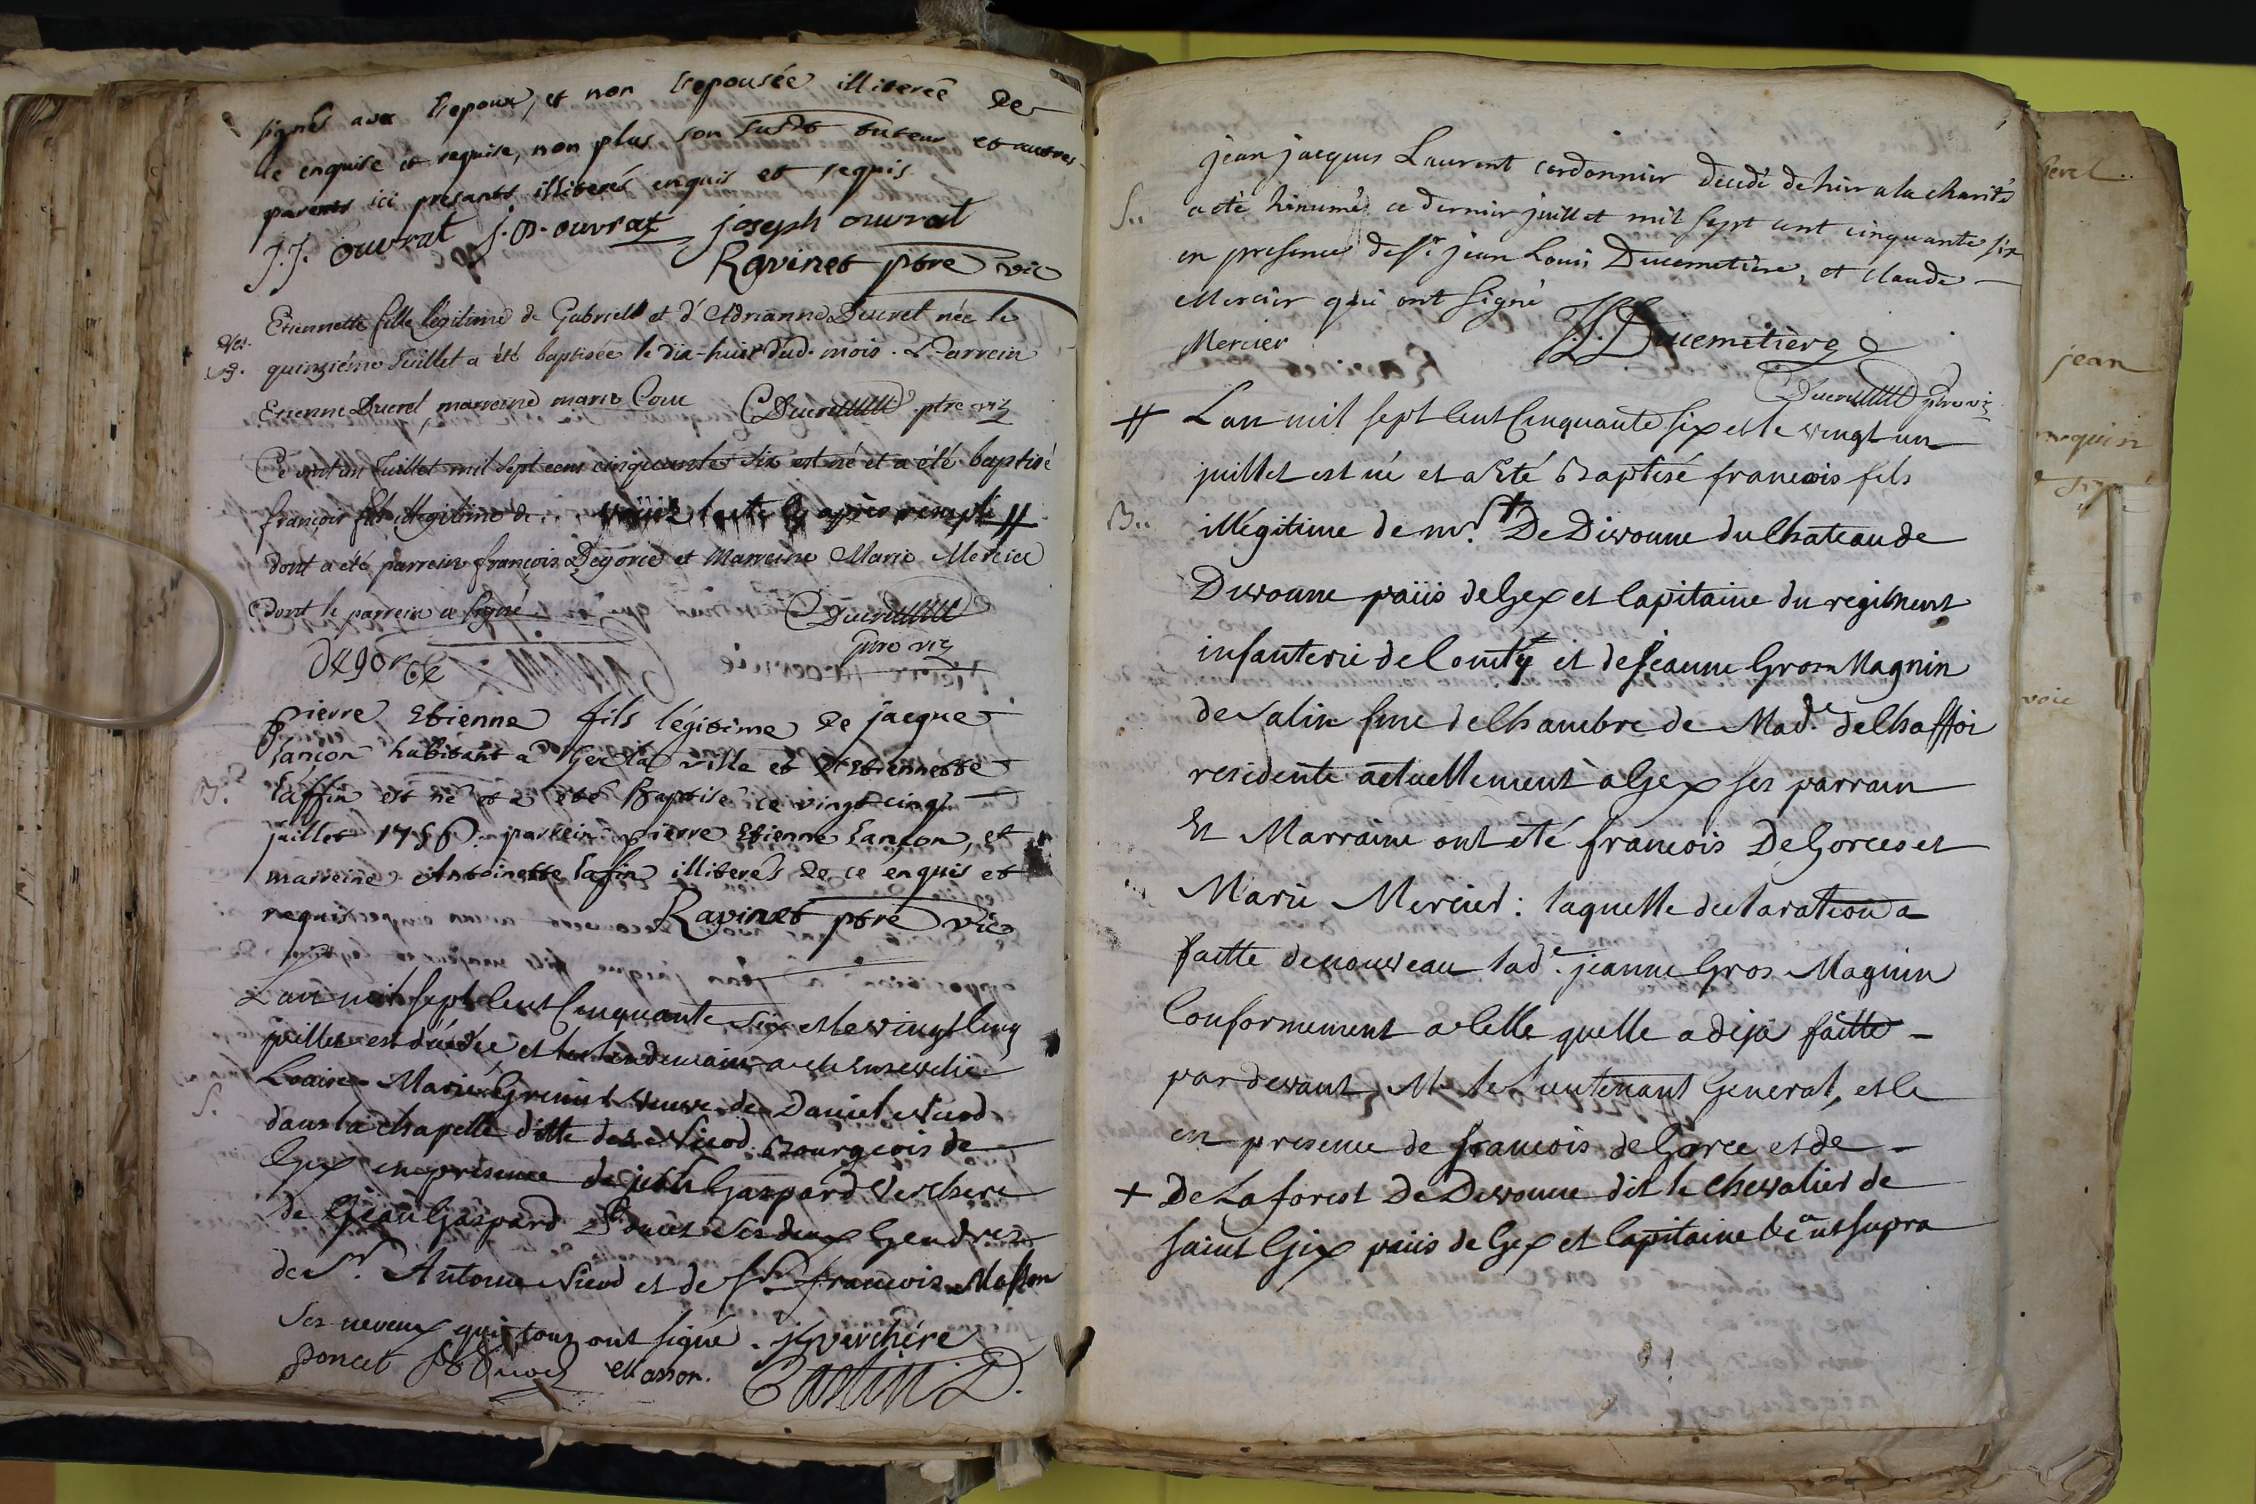 signés avec l'epoux, et non l'epousée illiterée de
ce enquise et requise, non plus son susdt tuteur et autres
parents ici présants illiterés enquis et requis.
J.J. ouvrat J.D. ouvrat joseph ouvrat
Ravinet ptre vic
Etiennette fille légitime de Gabriell et d'Adrianne Ducret née le
quinziéme Juillet a été baptisée le dix-huit dud. mois. Parrein
Etienne Ducret, marreine marie
Ducret ptre vic
Ce vint un Juillet mil sept cens cinquante six est né et a été baptisé
françois fils illegitime de .. voiiez l'acte cy après rempli #
dont a été parrein françois Degorce et Marreine Marie Mercier
Dont le parrein a signé
Ducret
ptre vic
degorce
B.
pierre Etienne fils légitime de jacque
Lançon habitant à Gex la ville et d'Etiennette
Laffin est né et a été Baptisé ce vingt cinq
juillet 1756. parrein pierre Etienne Lançon, et
marreine Antoinette Lafin illiterés de ce enquis et
requis
Ravinet ptre vic
L'an mil sept Cent Cinquante Six et le vingt Cinq
juillet est décédée, et le lendemain a eté Ensevelie
S.
Louise Marie Grenier veuve de Daniel Nicod
dans la chapelle ditte des Nicod Bourgeois de
Gex en présence de Gaspard Verchere
de Jean Gaspard Poncet ses deux Gendres
de Sr. Antoine Nicod et de Sr. francois Masson
Ses neveux qui tous ont signé. verchére
poncet Nicod Masson. Castin D.
jean jacques Laurent cordonnier decedé dehier a la charité
S..
a eté hinumé ce dernier juillet mil sept cent cinquante six
en presence de Sr. jean Louis Ducemetiere, et claude
Mercier qui ont signé
Mercier J.L. Ducemetiere
Ducret ptre vic
# L'an mil sept Cent Cinquante six et le vingt un
juillet est né et a Eté Baptisé francois fils
B..
illégitime de mr. + De Divonne du Chateau de
Divonne païis de Gex et Capitaine du regiment
infanterie de Comty et de Jeanne Gros Magnin
de Salin fme de Chambre de Made. de Chaffoi
residente actuellement a Gex ses parrain
Et Marraine ont eté francois De Gorces et
Marie Mercier : laquelle declaration a
faitte de nouveau lade. jeanne Gros Magnin
Conformement a Celle quelle a deja faitte -
pardevant Mr. le Lieutenant General, et le
en presence de francois de Gorce et de -
+ De Laforest De Devonne dit le chevalier de
saint Gix païis de Gex et Capitaine &ca ut supra
jean
voie